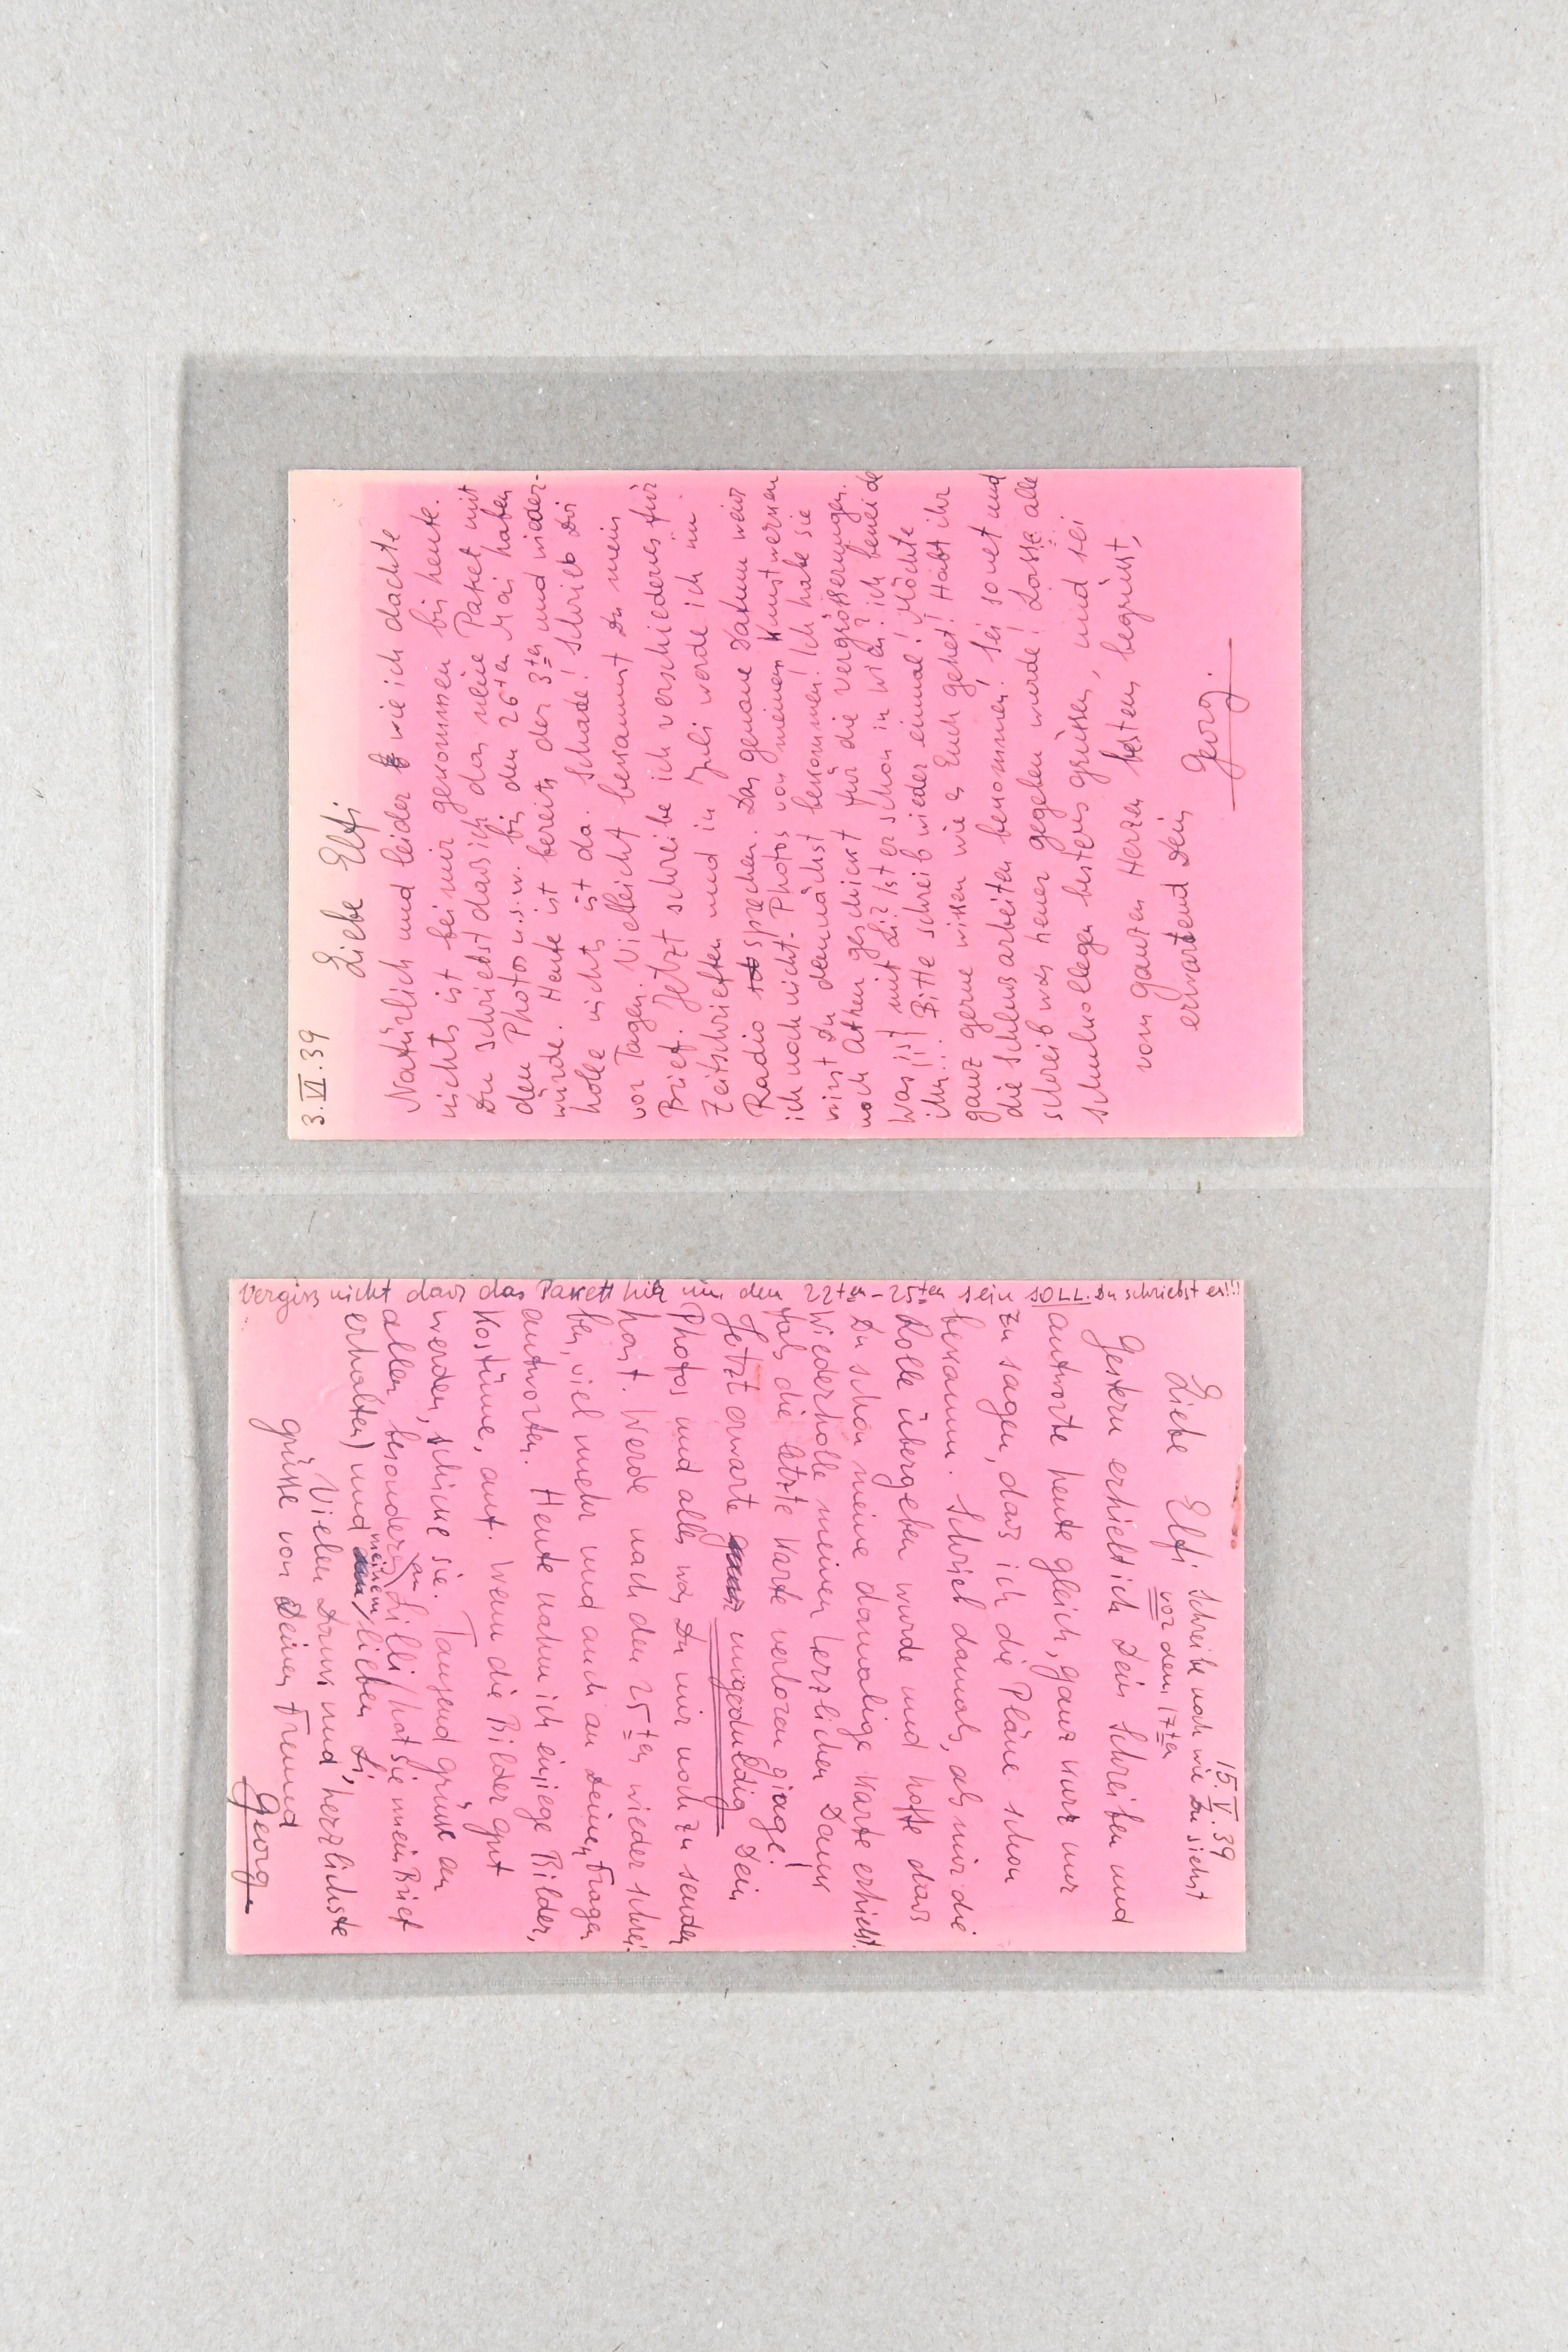 3.VI.39
Liebe Elfi
Natürlich und leider wie ich dachte
nichts ist bei mir gekommen bis heute.
Du schriebst dass ich das neue Paket mit
den Photos u.s.w. bis den 26ten Mai haben
würde. Heute ist bereits der 3ter und wieder-
holle nichts ist da. Schade! Schrieb Dir
vor Tagen. Vielleicht bekammst Du mein
Brief. Jetzt schreibe ich verschiedenes für
Zeitschrieften und in Juli werde ich im
Radio sprechen. Das genaue Datum weiss
ich noch nicht. Photos von meinen Kunstwerken
wirst Du demnächst bekommen! Ich habe sie
nach Athen geschickt für die Vergrösserungen.
Was ist mit Li? Ist er schon in Wien? ich beneide
ihn!!! Bitte schreib wieder einmal! Möchte
ganz gerne wissen wie es Euch gehet! Habt ihr
die Schlussarbeiten bekommen! Sei so net und
schreib was heuer gegeben wurde! Lasse alle
Schulkollegen bestens grüssen, und sei
vom ganzen Herzen bestens begrüsst,
erwartend Dein
Georg.
Vergiss nicht dass das Pakett hier um den 22ten-25ten sein SOLL. Du schriebst es!!!
15.V.39
Liebe Elfi Schreibe noch wie Du siehst
vor dem 17ten
Gestern erhielt ich Dein Schreiben und
antworte heute gleich, ganz kurz nur
zu sagen, dass ich die Pläne schon
bekamm. Schrieb damals, als mir die
Rolle übergeben wurde und hoffe dass
Du schon meine damalige Karte erhielst.
Wiederholle meinen herzlichen Dank
falls die letzte Karte verloren ginge!
Jetzt erwarte ganz ungeduldig Dein
Photos und alles was Du mir noch zu senden
hast. Werde nach den 25ten wieder schrei-
ben, viel mehr und auch an Deinen Fragen
antworten. Heute nahm ich einiege Bilder,
Kostüme, auf. Wenn die Bilder gut
werden, schicke sie. Tausend grüsse an
allen, besonders an Lilli /hat sie mein Brief
erhalten) und meinem lieben Li,
Vielen Dank und herzlichste
grüsse von Deinen Freund
Georg.